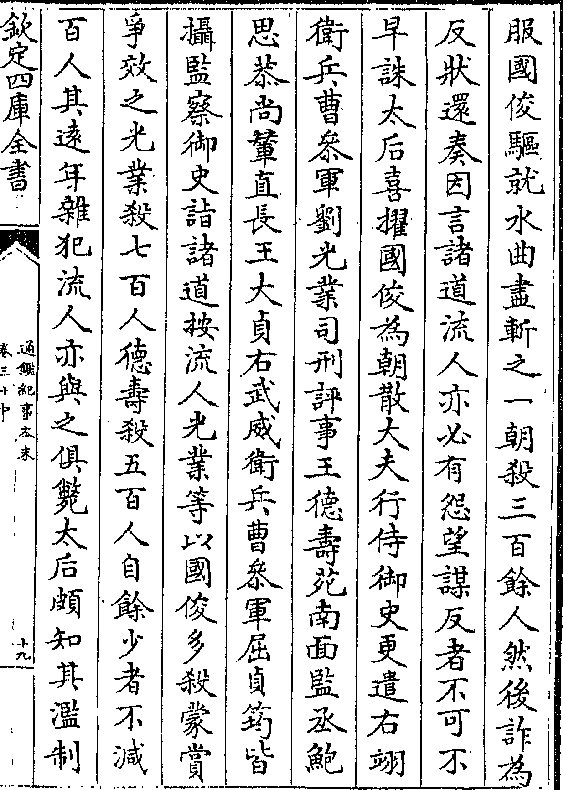 服國俊驅就水曲盡斬之一朝殺三百餘人然後詐為
反狀還奏因言諸道流人亦必有怨望謀反者不可不
早誅太后喜擢國俊為朝散大夫行侍御史更遣右翊
衛兵曹叅軍劉光業司刑評事王德壽苑南面監丞鮑
思恭尚輦直長王大貞右武威衛兵曹叅軍屈貞筠皆
攝監察御史詣諸道按流人光業等以國俊多殺蒙賞
爭效之光業殺七百人德壽殺五百人自餘少者不減
百人其逺年雜犯流人亦與之俱斃太后頗知其濫制
欽定四庫全書
通鑑紀事本末
卷三十中
十九